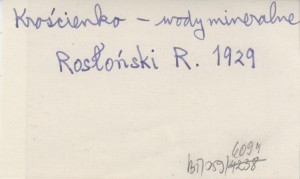 Krościenko – wody mineralne
Rosłoński R. 1929
6094
BI/259/4238